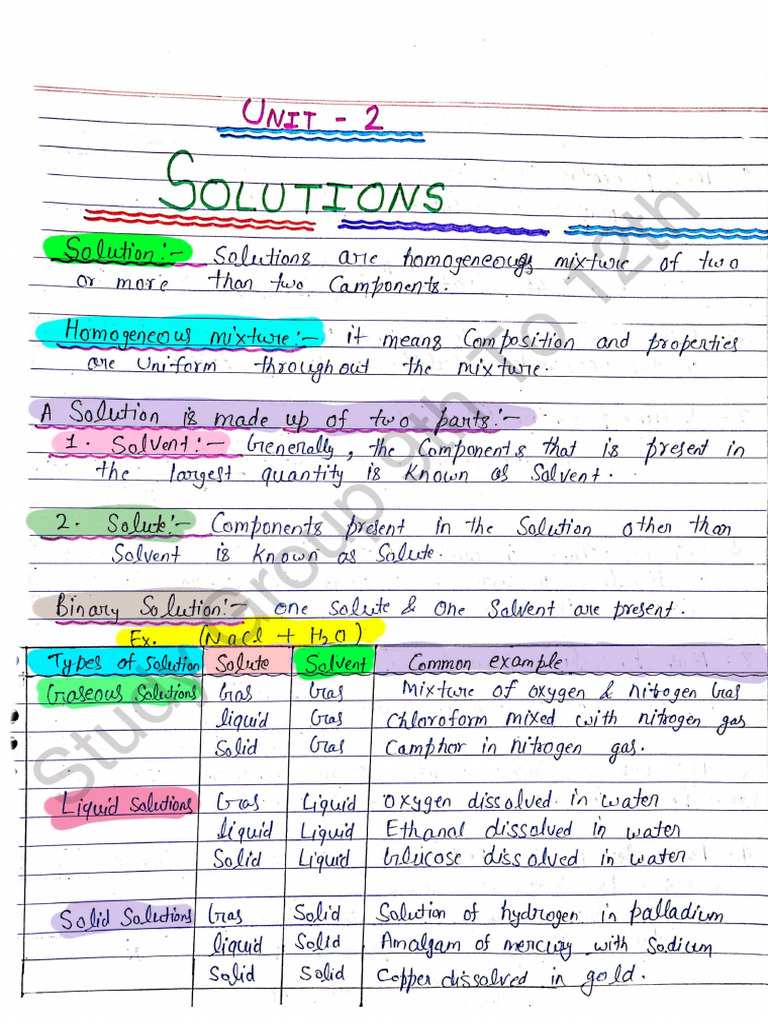 UNIT - 2
SOLUTIONS
Solution:- Solutions are homogeneous mixture of two
or more than two Components.
Homogeneous mixture:- it means Composition and properties
are Uniform throughout the mixture.
A Solution is made up of two parts:-
1. Solvent:- Generally, the Components that is present in
the largest quantity is Known as Solvent.
2. Solute:- Components present in the Solution other than
Solvent is Known as Solute.
Binary Solution:- one Solute & One Solvent are present.
Ex. (NaCl + H2O)
Types of solution Solute Solvent Common example
Gaseous Solutions Gas Gas Mixture of oxygen & nitrogen Gas
liquid Gas Chloroform mixed with nitrogen gas
Solid Gas Camphor in nitrogen gas.
Liquid Solutions Gas Liquid Oxygen dissolved in water
liquid Liquid Ethanal dissolved in water
Solid Liquid Glucose dissolved in water
Solid Solutions Gas Solid Solution of hydrogen in palladium
liquid Solid Amalgam of mercury with Sodium
Solid Solid Copper dissolved in gold.
Study Group 9th To 12th